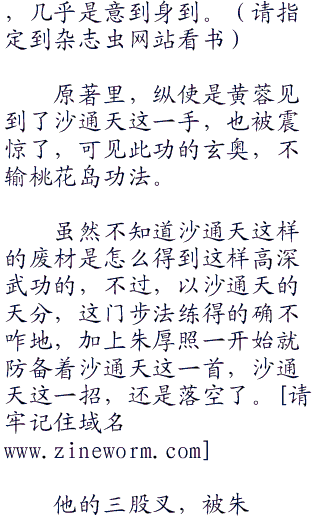 ，几乎是意到身到。（请指
定到杂志虫网站看书）
原著里，纵使是黄蓉见
到了沙通天这一手，也被震
惊了，可见此功的玄奥，不
输桃花岛功法。
虽然不知道沙通天这样
的废材是怎么得到这样高深
武功的，不过，以沙通天的
天分，这门步法练得的确不
咋地，加上朱厚照一开始就
防备着沙通天这一首，沙通
天这一招，还是落空了。[请
牢记住域名
www.zineworm.com]
他的三股叉，被朱